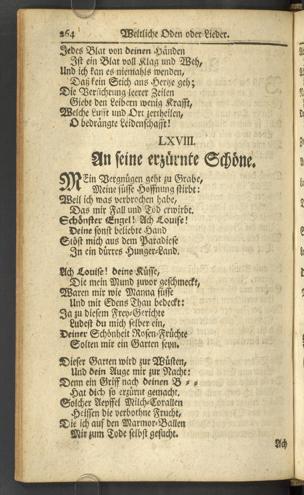 264 Weltliche Oden oder Lieder.
Jedes Blat von deinen Händen
Ist ein Blat voll Klag und Weh,
Und ich kan es niemahls wenden,
Daß kein Stich aus Hertze geh;
Die Berührung leerer Zeilen
Giebt den Leibern wenig Krafft,
Welche Lufft und Ort zertheilen,
O bedrängte Leidenschafft!
LXVIII.
An seine erzürnte Schöne.
MEin Vergnügen geht zu Grabe,
Meine süsse Hoffnung stirbt:
Weil ich was verbrochen habe,
Das mir Fall und Tod erwirbt.
Schönster Engel! Ach Louise!
Deine sonst beliebte Hand
Stöst mich aus dem Paradiese
In ein dürres Hunger-Land.
Ach Louise! deine Küsse,
Die mein Mund zuvor geschmeckt,
Waren mir wie Manna süsse
Und mit Edens Thau bedeckt:
Ja zu diesem Frey-Gerichte
Ludest du mich selber ein,
Deiner Schönheit Rosen-Früchte
Solten mir ein Garten seyn.
Dieser Garten wird zur Wüsten,
Und dein Auge mir zur Nacht:
Denn ein Griff nach deinen B = =
Hat dich so erzürnt gemacht,
Solcher Aepffel Milch-Corallen
Heissen die verbothne Frucht,
Die ich auf den Marmor-Ballen
Mir zum Tode selbst gesucht.
Ach